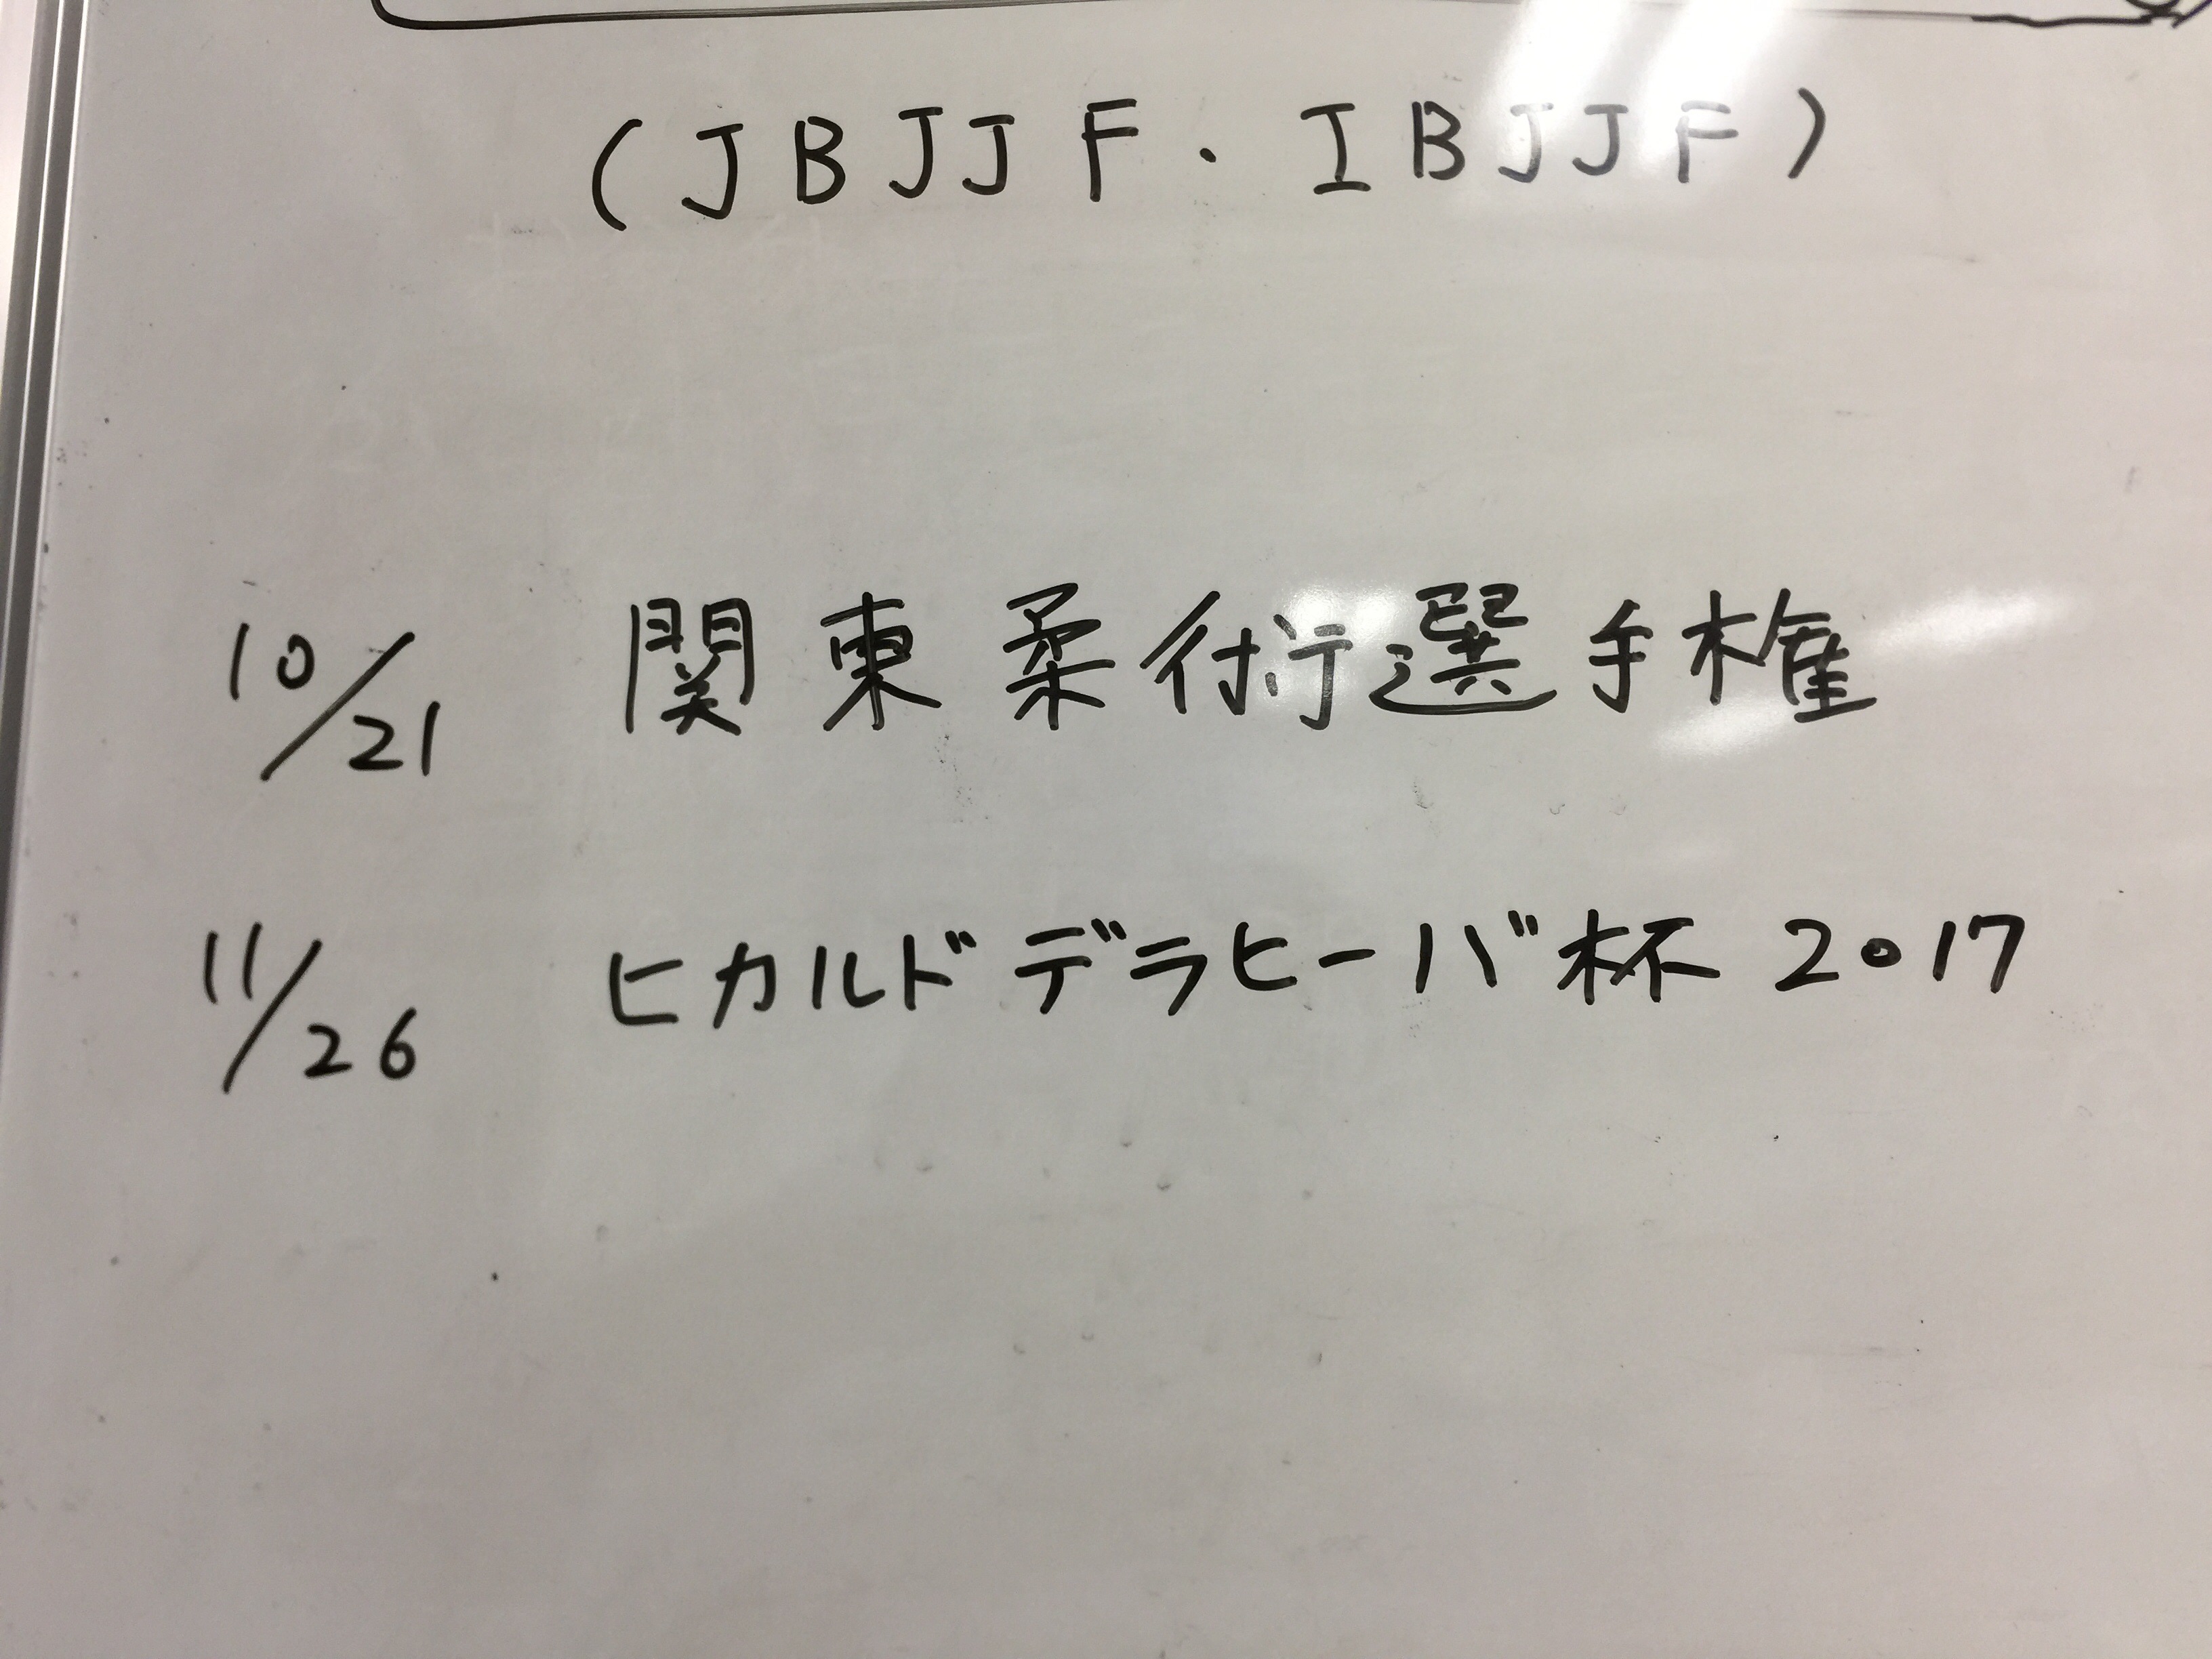 (JBJJF・IBJJF)
10/21 関東柔術選手権
11/26 ヒカルドデラヒーバ杯 2017